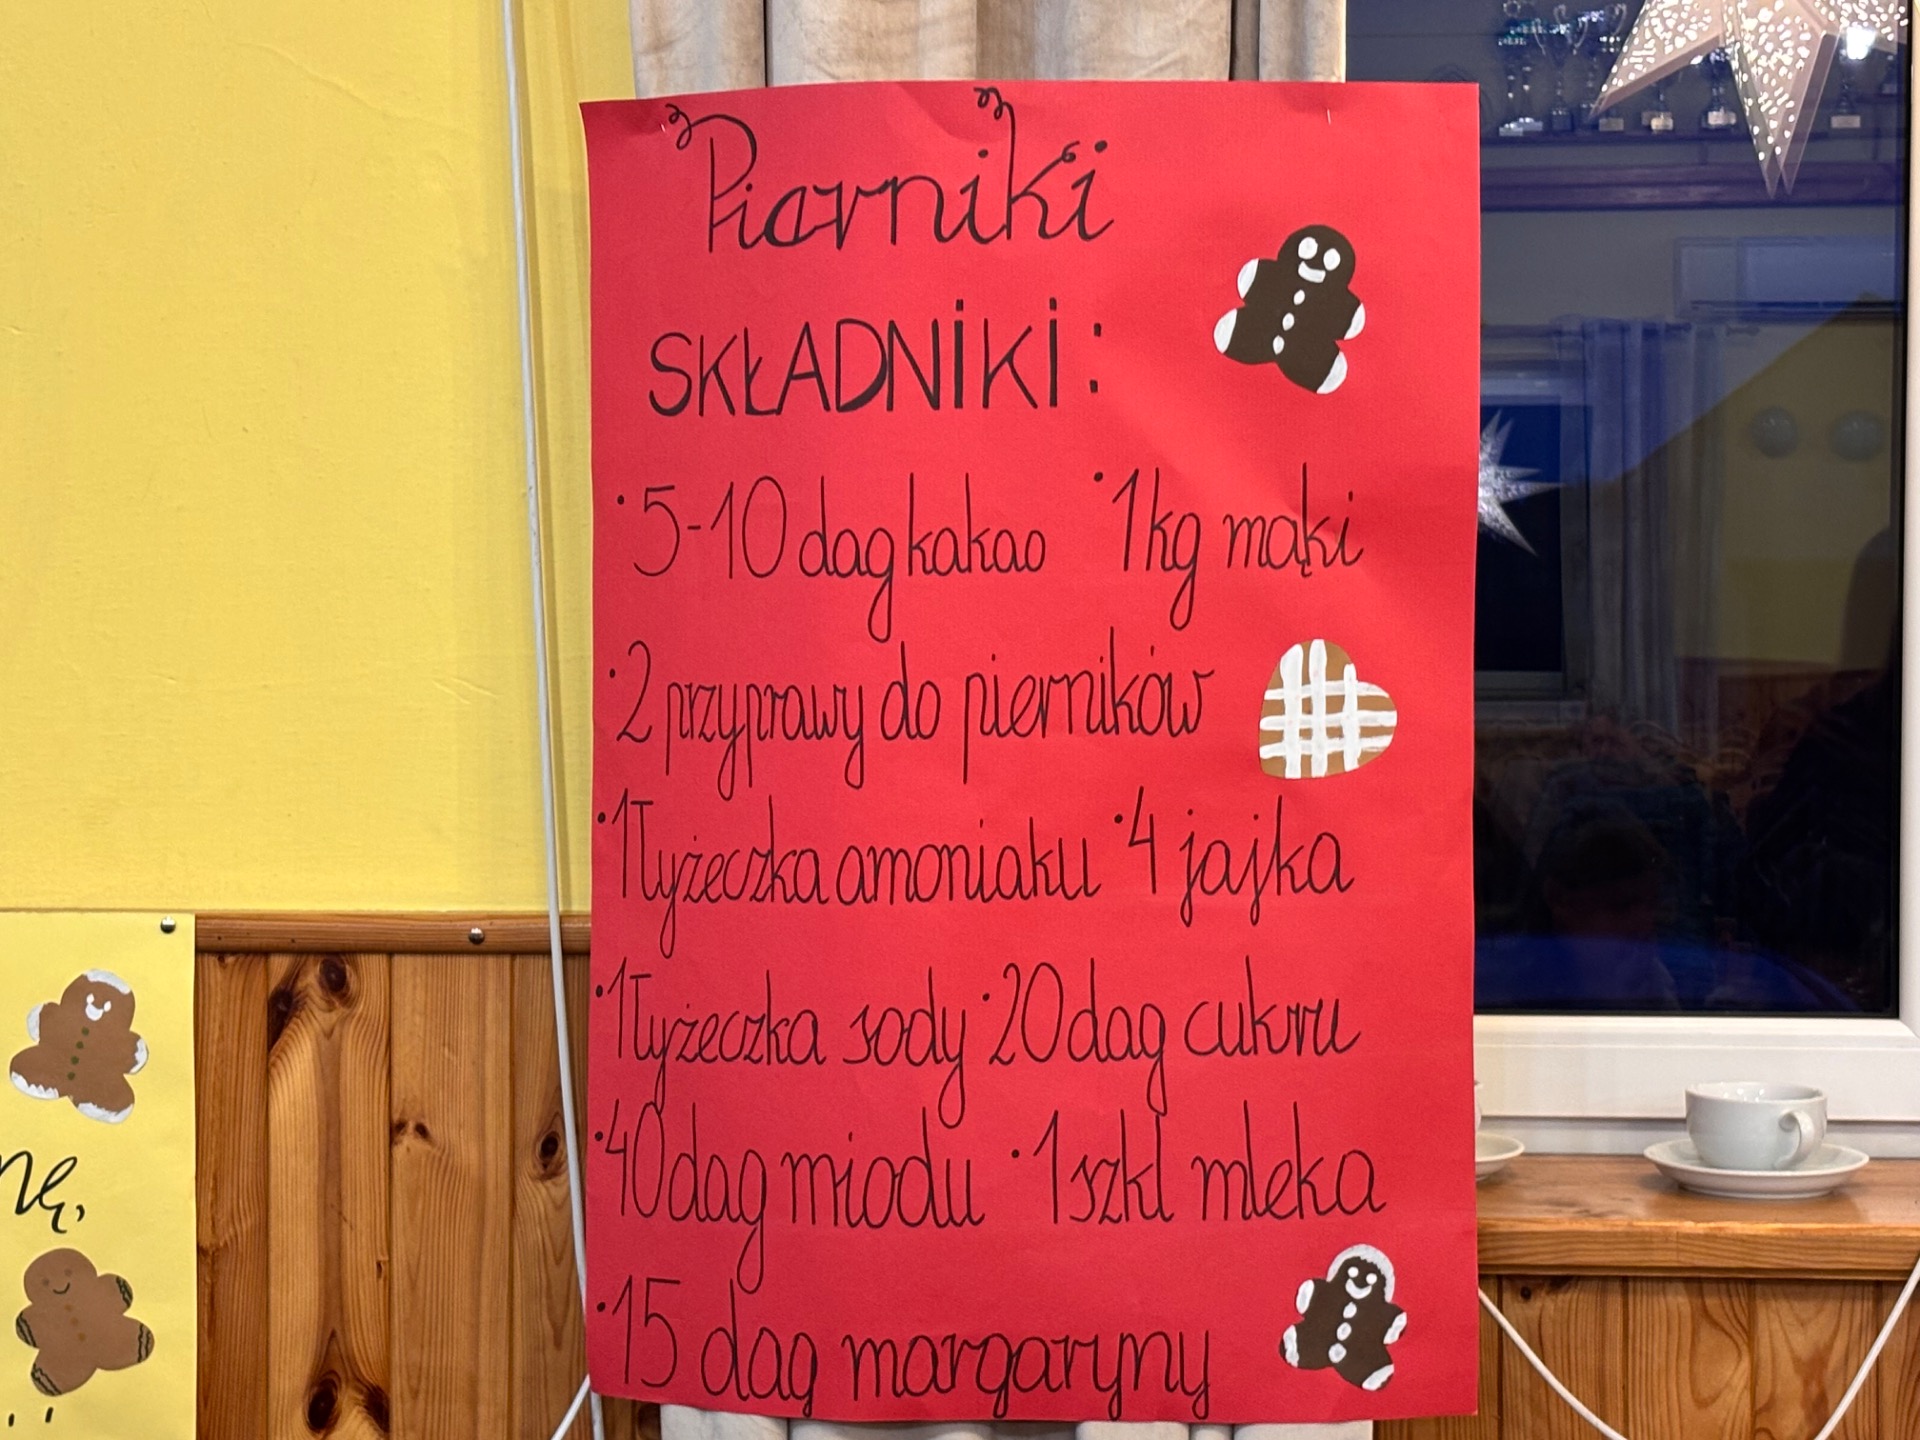 Pierniki
SKŁADNIKI:
•5-10 dag kakao •1kg mąki
•2 przyprawy do pierników
•1 łyżeczka amoniaku •4 jajka
•1 łyżeczka sody •20 dag cukru
•40 dag miodu •1 szkl mleka
•15 dag margaryny